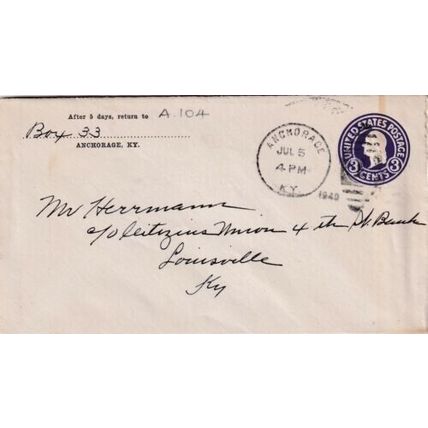 After 5 days, return to
A.104
Box 33
ANCHORAGE, KY.
ANCHORAGE
JUL 5
4 PM
KY.
1940
UNITED STATES POSTAGE
3 3
CENTS
Mr Herrmann
c/o Citizens Union 4th St. Bank
Louisville
Ky